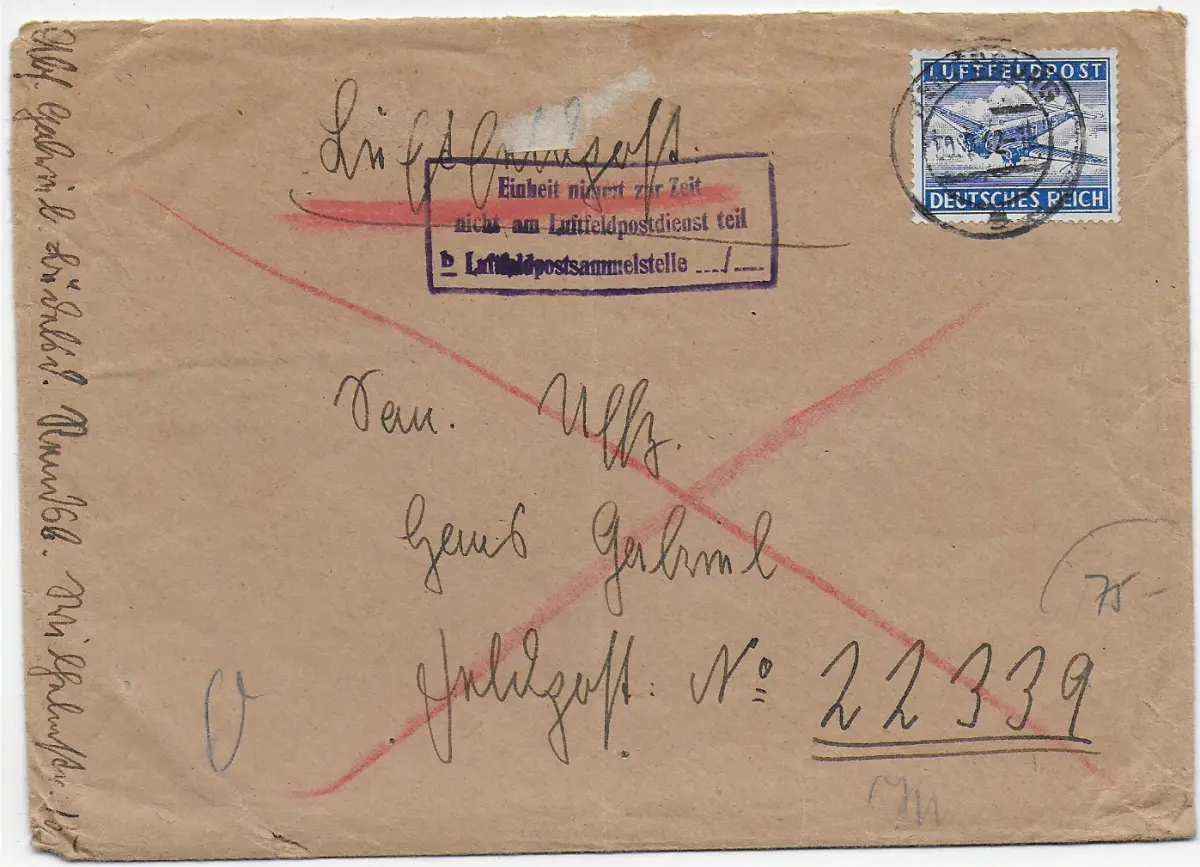 Luftfeldpost.
LUFTFELDPOST
DEUTSCHES REICH
Einheit nimmt zur Zeit
nicht am Luftfeldpostdienst teil
b Luftfeldpostsammelstelle .../...
San. Uffz.
Hans Gabriel
Feldpost: No 22339
75 -
Abs. Gabriel. Wilhelmstr. 15